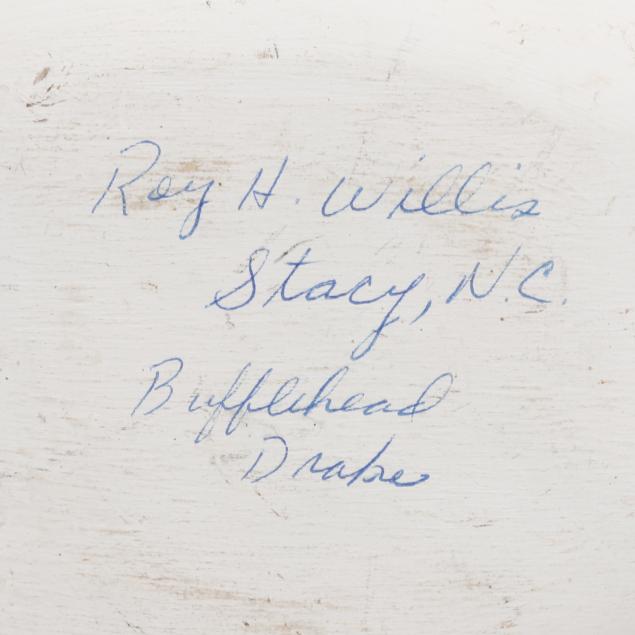 Roy H. Willis
Stacy, N.C.
Bufflehead
Drake